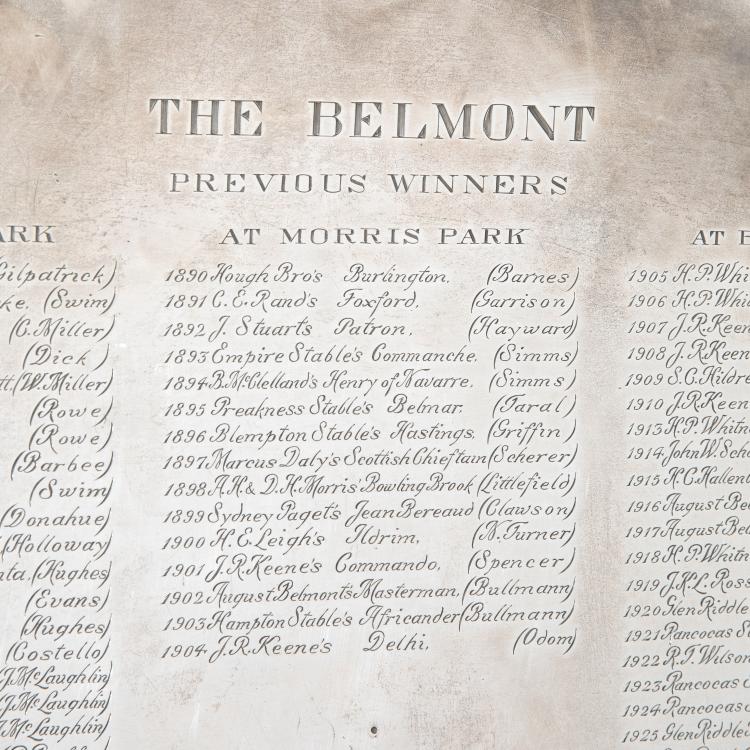 THE BELMONT
PREVIOUS WINNERS
ARK
Gilpatrick)
ke. (Swim)
(C. Miller)
(Dick)
tt. (W. Miller)
(Rowe)
(Rowe)
(Barbee)
(Swim)
(Donahue)
(Holloway)
nta. (Hughes)
(Evans)
(Hughes)
(Costello)
(J. McLaughlin)
(J. McLaughlin)
(J. McLaughlin)
AT MORRIS PARK
1890 Hough Bro's Burlington. (Barnes)
1891 C. E. Rand's Foxford. (Garrison)
1892 J. Stuarts Patron. (Hayward)
1893 Empire Stable's Commanche. (Simms)
1894 B. McClelland's Henry of Navarre. (Simms)
1895 Preakness Stable's Belmar. (Taral)
1896 Blempton Stable's Hastings. (Griffin)
1897 Marcus Daly's Scottish Chieftain (Scherer)
1898 A.H. & D.H. Morris' Bowling Brook (Littlefield)
1899 Sydney Paget's Jean Bereaud (Clawson)
1900 H. E. Leigh's Ildrim. (N. Turner)
1901 J. R. Keene's Commando. (Spencer)
1902 August Belmont's Masterman. (Bullmann)
1903 Hampton Stable's Africander (Bullmann)
1904 J. R. Keene's Delhi. (Odom)
AT B
1905 H. P. Whi
1906 H. P. Whi
1907 J. R. Keen
1908 J. R. Keen
1909 S. C. Hildre
1910 J. R. Keen
1913 H. P. Whitn
1914 John W. Scho
1915 H. C. Hallent
1916 August Bel
1917 August Bel
1918 H. P. Whitn
1919 J. K. L. Ross
1920 Glen Riddle
1921 Rancocas S
1922 R. T. Wilson
1923 Rancocas
1924 Rancocas
1925 Glen Riddle